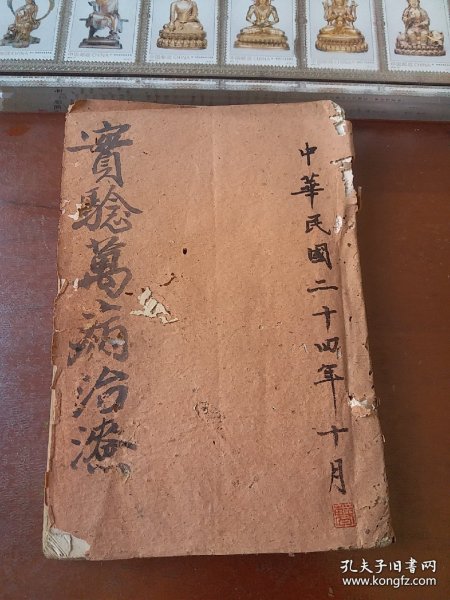 中華民國二十四年十月
實驗萬病治
孔夫子旧书网
www.kongfz.com